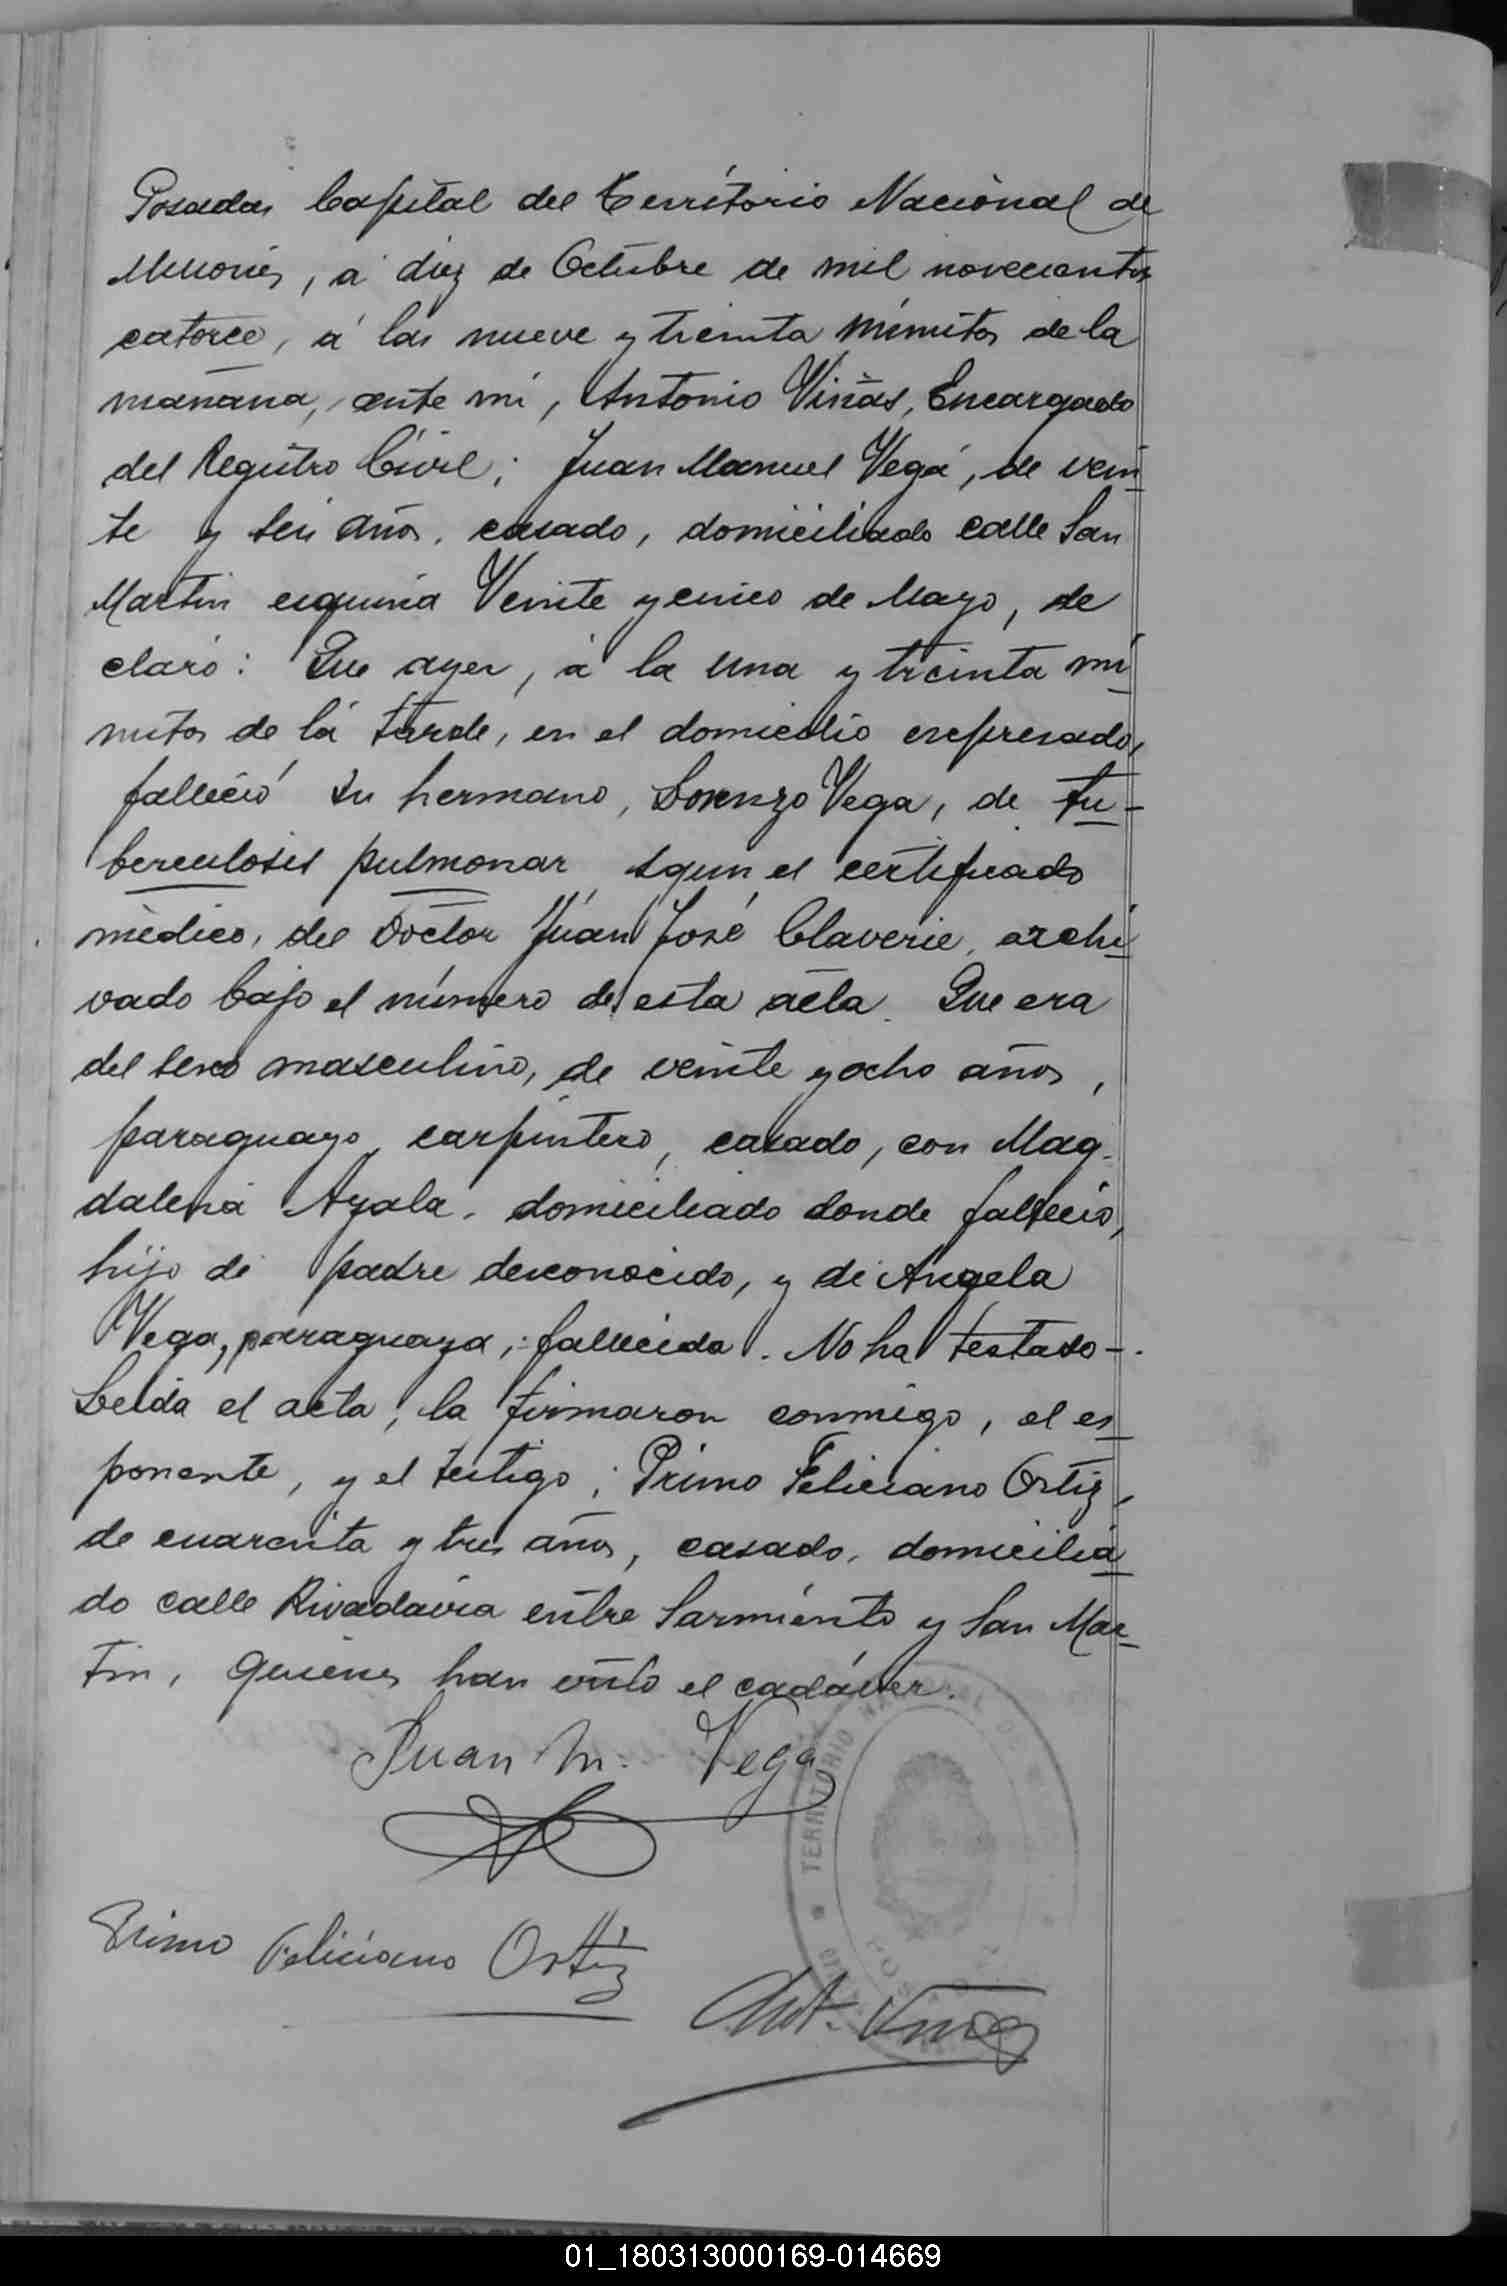 Posadas Capital del Territorio Nacional de
Misiones, á diez de Octubre de mil novecientos
catorce, á las nueve y treinta minutos de la
mañana, ante mí, Antonio Viñas, Encargado
del Registro Civil; Juan Manuel Vega, de vein
te y seis años, casado, domiciliado calle San
Martin esquina Veinte y cinco de Mayo, de
claró: Que ayer, á la una y treinta mi
nutos de la tarde, en el domicilio expresado,
falleció su hermano, Lorenzo Vega, de tu-
berculosis pulmonar, segun el certificado
médico, del Doctor Juan José Claverie, archi
vado bajo el número de esta acta. Que era
del sexo masculino, de veinte y ocho años,
paraguayo, carpintero, casado, con Mag-
dalena Ayala, domiciliado donde falleció,
hijo de padre desconocido, y de Angela
Vega, paraguaya, fallecida. No ha testado-.
Leida el acta, la firmaron conmigo, el es
ponente, y el testigo; Primo Feliciano Ortiz,
de cuarenta y tres años, casado, domicilia
do calle Rivadavia entre Sarmiento y San Mar
tin, quienes han visto el cadáver.
Juan M. Vega
Primo Feliciano Ortiz
Ant. Viñas
TERRITORIO
01_180313000169-014669